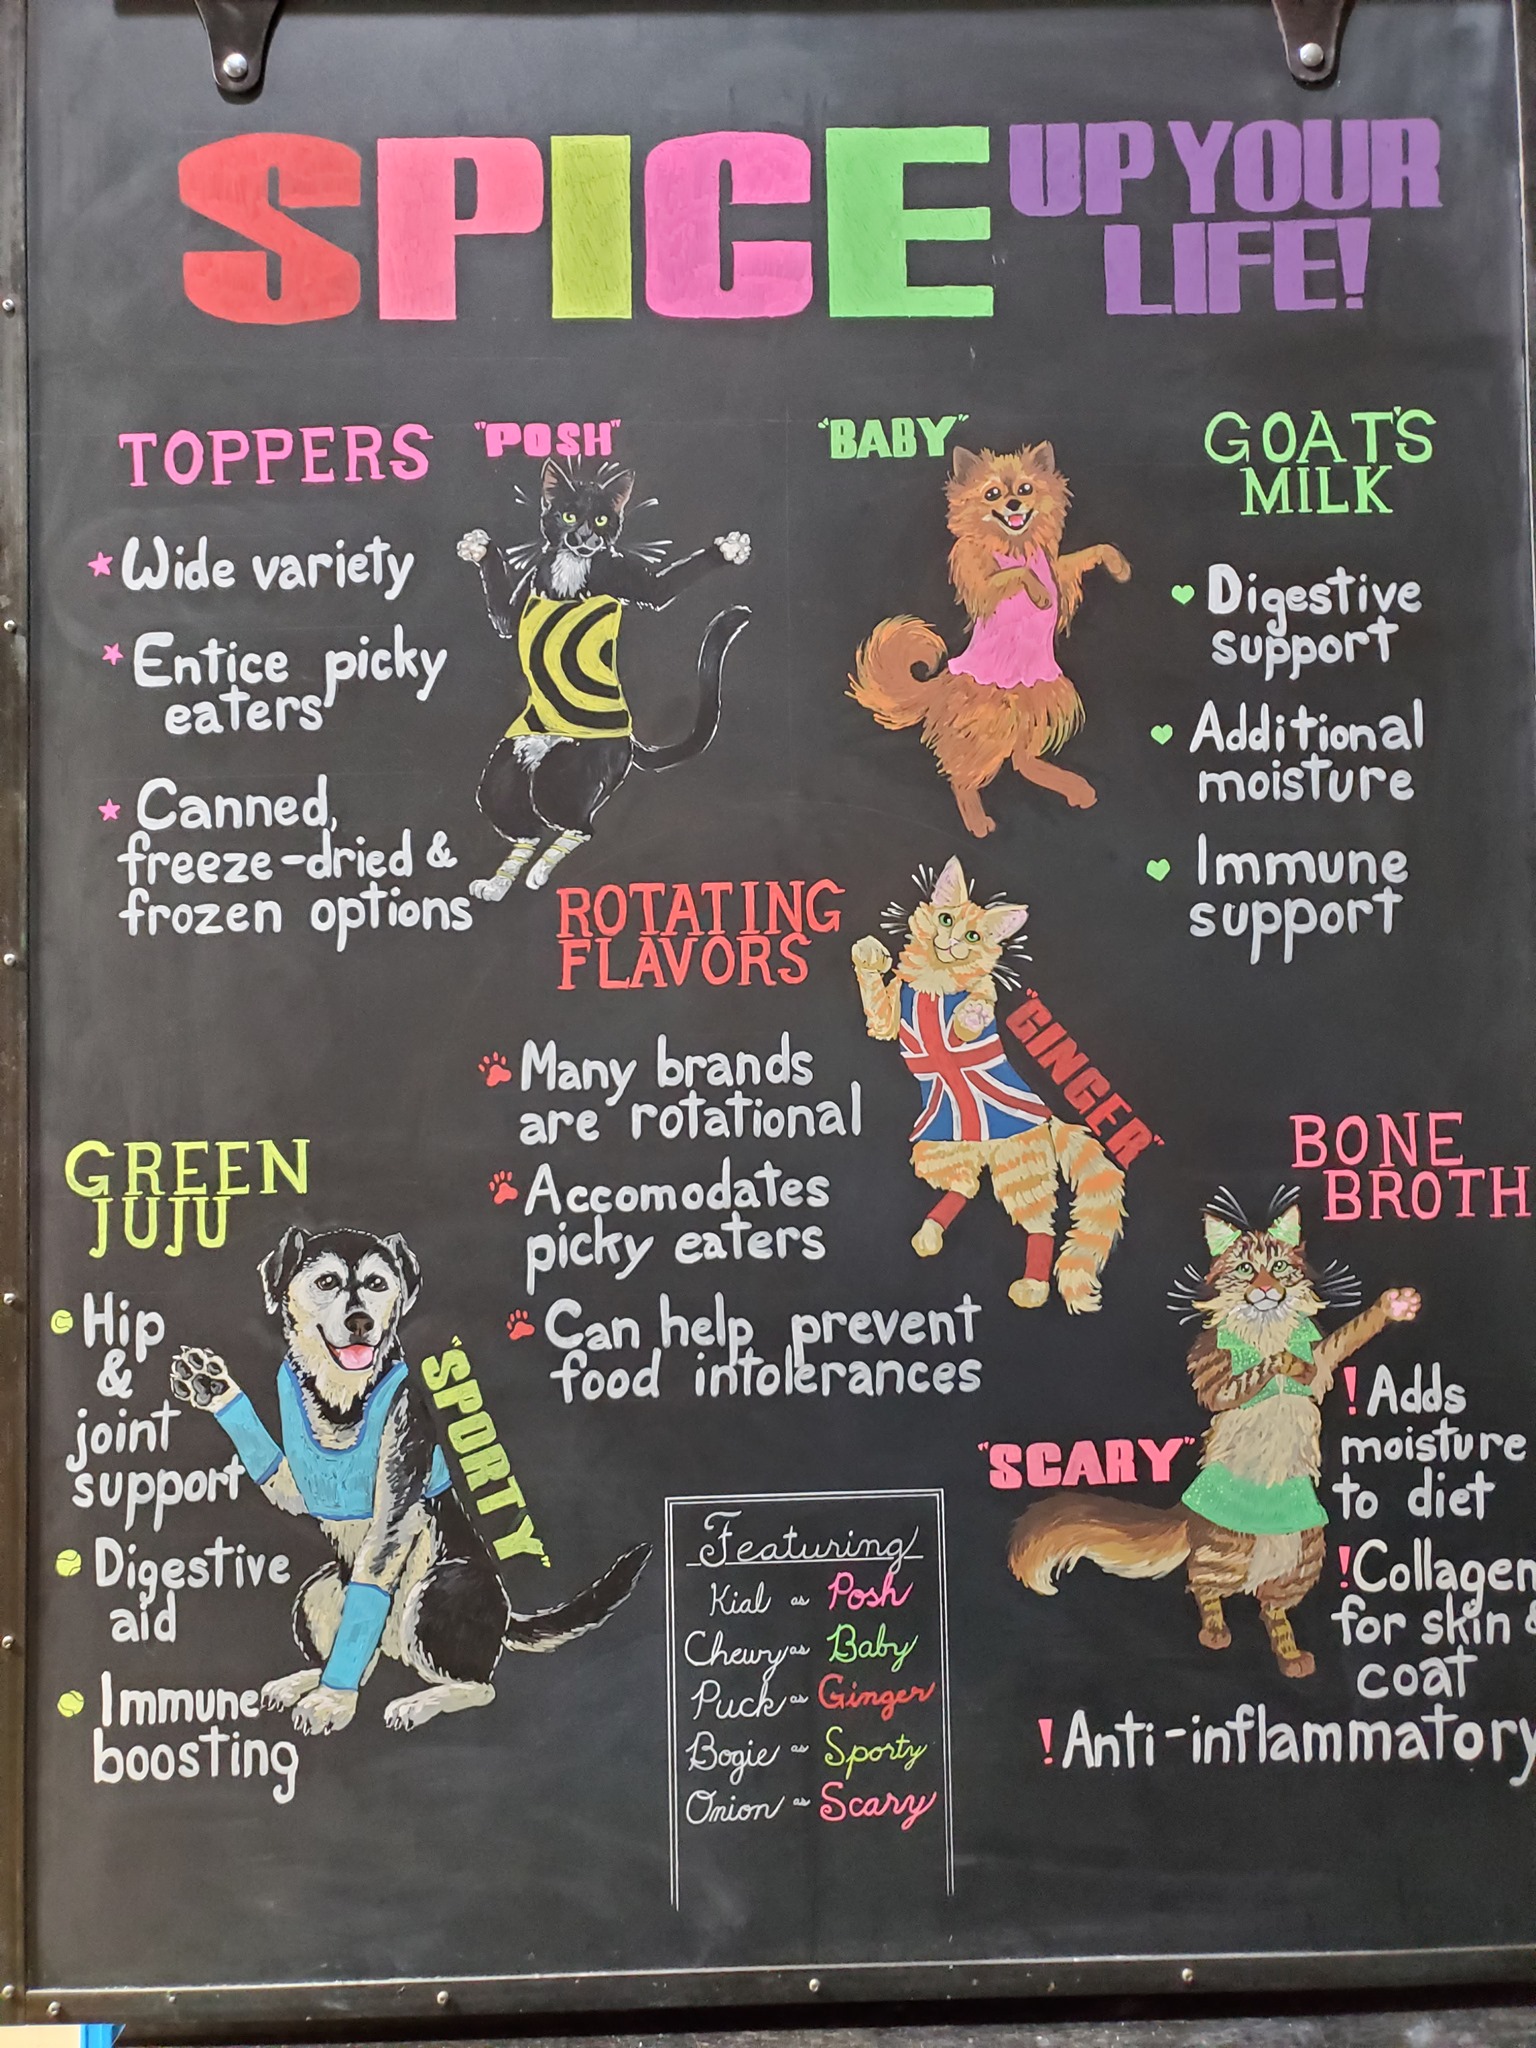 SPICE UP YOUR
LIFE!
TOPPERS
"POSH"
Wide variety
Entice picky
eaters
Canned,
freeze-dried &
frozen options
"BABY"
GOAT'S
MILK
Digestive
support
Additional
moisture
Immune
support
ROTATING
FLAVORS
"GINGER"
Many brands
are rotational
Accomodates
picky eaters
Can help prevent
food intolerances
GREEN
JUJU
"SPORTY"
Hip
&
joint
support
Digestive
aid
Immune
boosting
BONE
BROTH
"SCARY"
! Adds
moisture
to diet
! Collagen
for skin &
coat
! Anti-inflammatory
Featuring
Kial as Posh
Chewy as Baby
Puck as Ginger
Bogie as Sporty
Onion as Scary